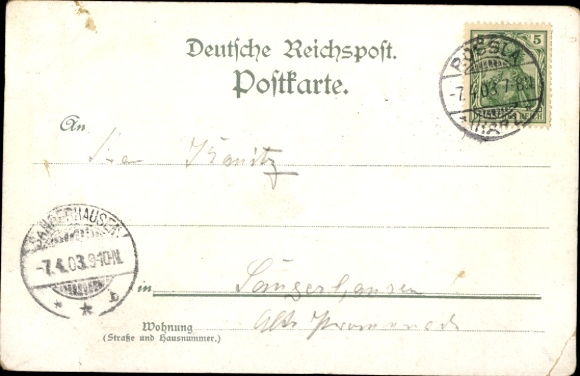 Deutsche Reichspost.
Postkarte.
5
ROSSLA
-7.4.03 7-8N
(HARZ)
REICH
An
Kanitz
SANGERHAUSEN
-7.4.03.9-10N.
* * b
in Sangerhausen
Wohnung
(Straße und Hausnummer.)
Alte Promenade